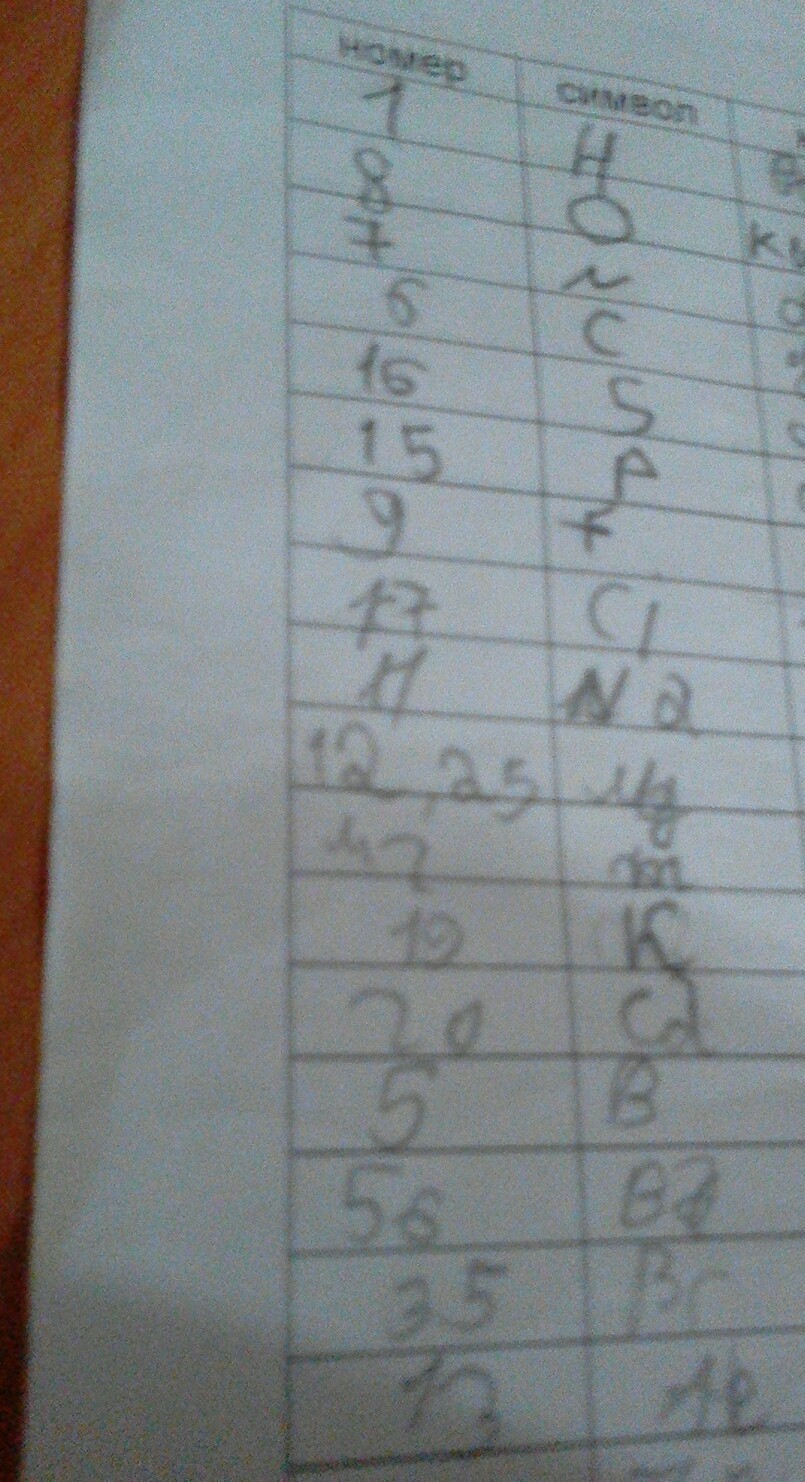 номер символ
1 H
8 O
7 N
6 C
16 S
15 P
9 F
17 Cl
11 Na
12,25 Mg
K
19
20 Ca
5 B
56 Ba
35 Br
13 Al